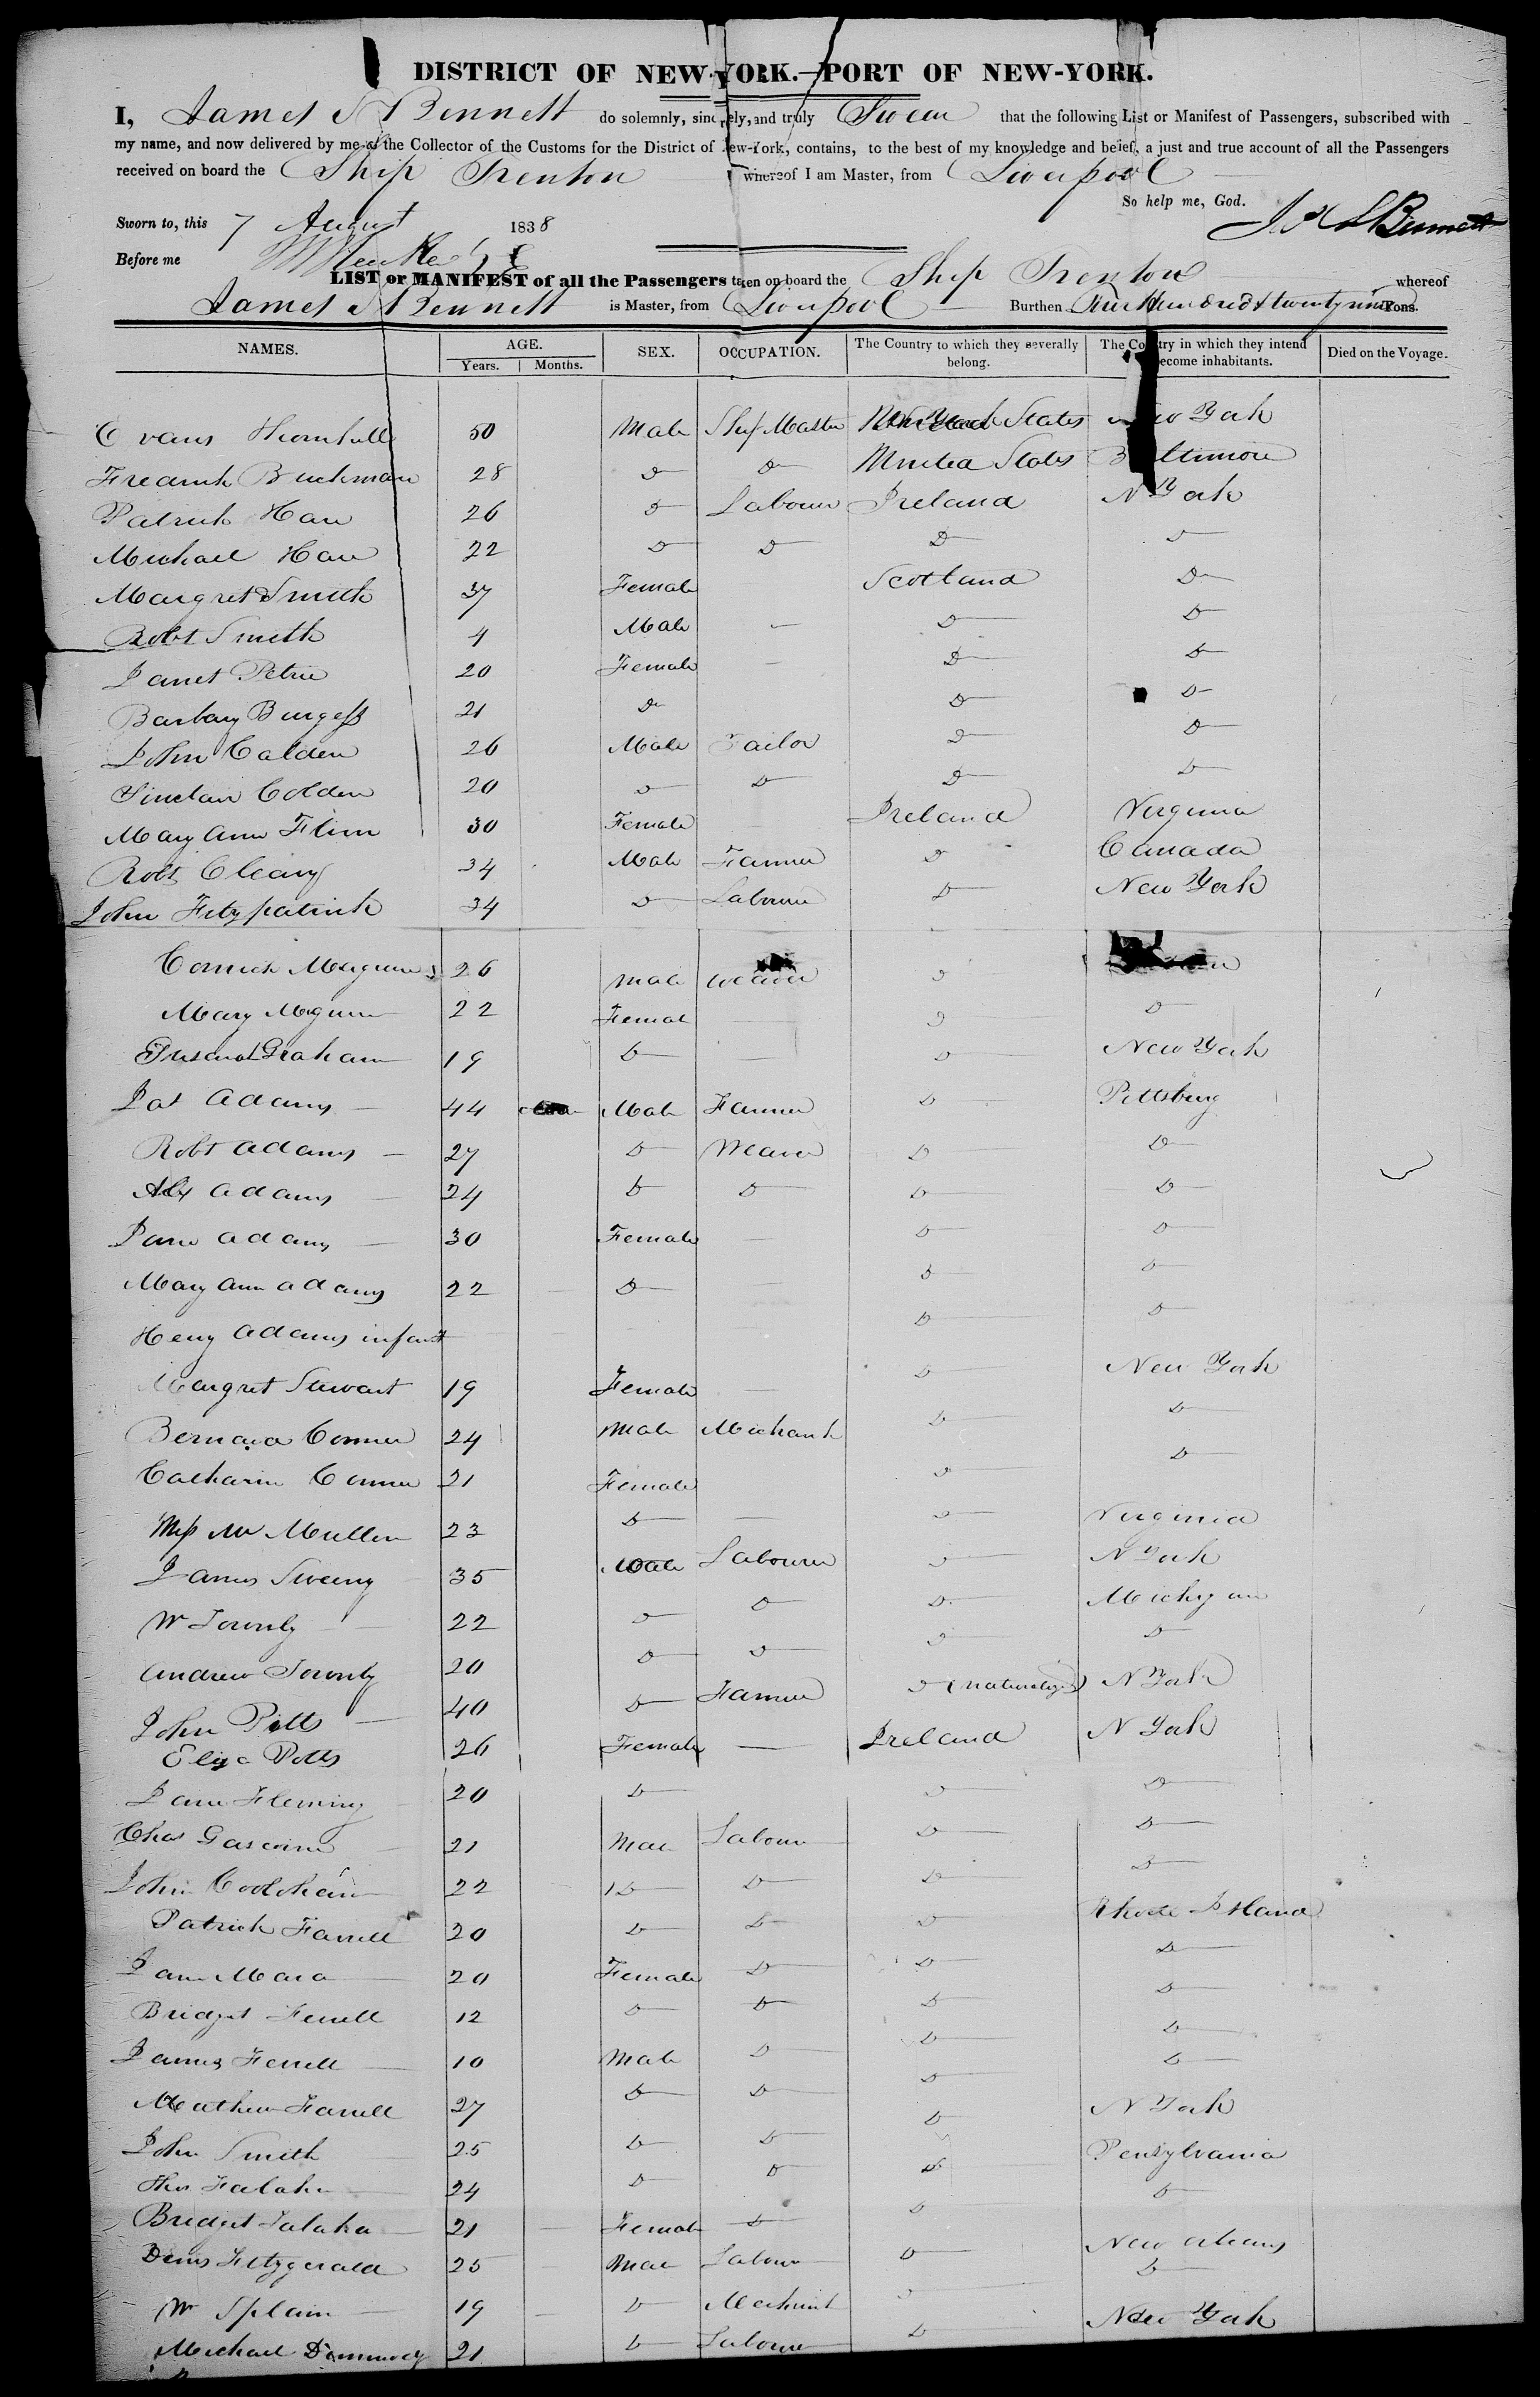 DISTRICT OF NEW-YORK.—PORT OF NEW-YORK.
I, James S Bennett do solemnly, sincerely, and truly Swear that the following List or Manifest of Passengers, subscribed with
my name, and now delivered by me to the Collector of the Customs for the District of New-York, contains, to the best of my knowledge and belief, a just and true account of all the Passengers
received on board the Ship Trenton whereof I am Master, from Liverpool
So help me, God.
Sworn to, this 7 August 1838 Jas S Bennett
Before me
LIST or MANIFEST of all the Passengers taken on board the Ship Trenton whereof
James S Bennett is Master, from Liverpool Burthen Hundred & twenty nine Tons.
NAMES. AGE. SEX. OCCUPATION. The Country to which they severally belong. The Country in which they intend to become inhabitants. Died on the Voyage.
Years. Months.
Evans Thornhill 50 Male Ship Master States New York
Fredrick Buckman 28 D D United States Baltimore
Patrick Hare 26 D Labourer Ireland N York
Michael Hare 22 D D D D
Margret Smith 37 Female Scotland D
Robt Smith 4 Male — D D
Janet Petrie 20 Female — D D
Barbary Burgess 21 D D D
John Calden 26 Male Tailor D D
Sinclair Colden 20 D D D D
Mary Ann Flinn 30 Female Ireland Virginia
Robt Cleary 34 Male Farmer D Canada
John Fitzpatrick 34 D Labourer D New York
26 Male Weaver D
Mary 22 Female — D D
Graham 19 D — D New York
Jas Adams 44 Male Farmer D Pittsburg
Robt Adams 27 D Weaver D D
Alex Adams 24 D D D D
Jane Adams 30 Female — D D
Mary Ann Adams 22 D — D D
Henry Adams infant D D
Margret Stewart 19 Female — D New York
Bernard Conner 24 Male Merchant D D
Catharine Conner 21 Female D D
Miss Mc Mullen 23 D — D Virginia
James Sweeny 35 Male Labourer D N York
Wm Townly 22 D D D Michigan
Andrew Townly 20 D D D D
John Potts 40 D Farmer D (naturalized) N York
Eliza Potts 26 Female — Ireland N York
Jane Fleming 20 D D D
Chas Gascoine 21 Male Labourer D D
John 22 D D D D
Patrick Farrell 20 D D D Rhode Island
Jane Mara 20 Female D D D
Bridget Ferrell 12 D D D D
James Ferrell 10 Male D D D
Mathew Farrell 27 D D D D
John Smith 25 D D D N York
Thos 24 D D D Pensylvania
Bridget 21 Female D D D
Denis Fitzgerald 25 Male Labourer D New Orleans
Wm Splain 19 D Merchant D D
Michael 21 D Labourer D New York